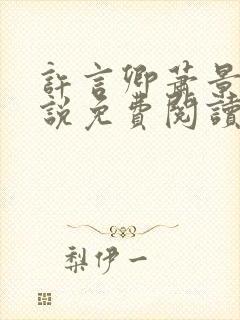 許言卿蕭景
說免費閱讀
梨伊一